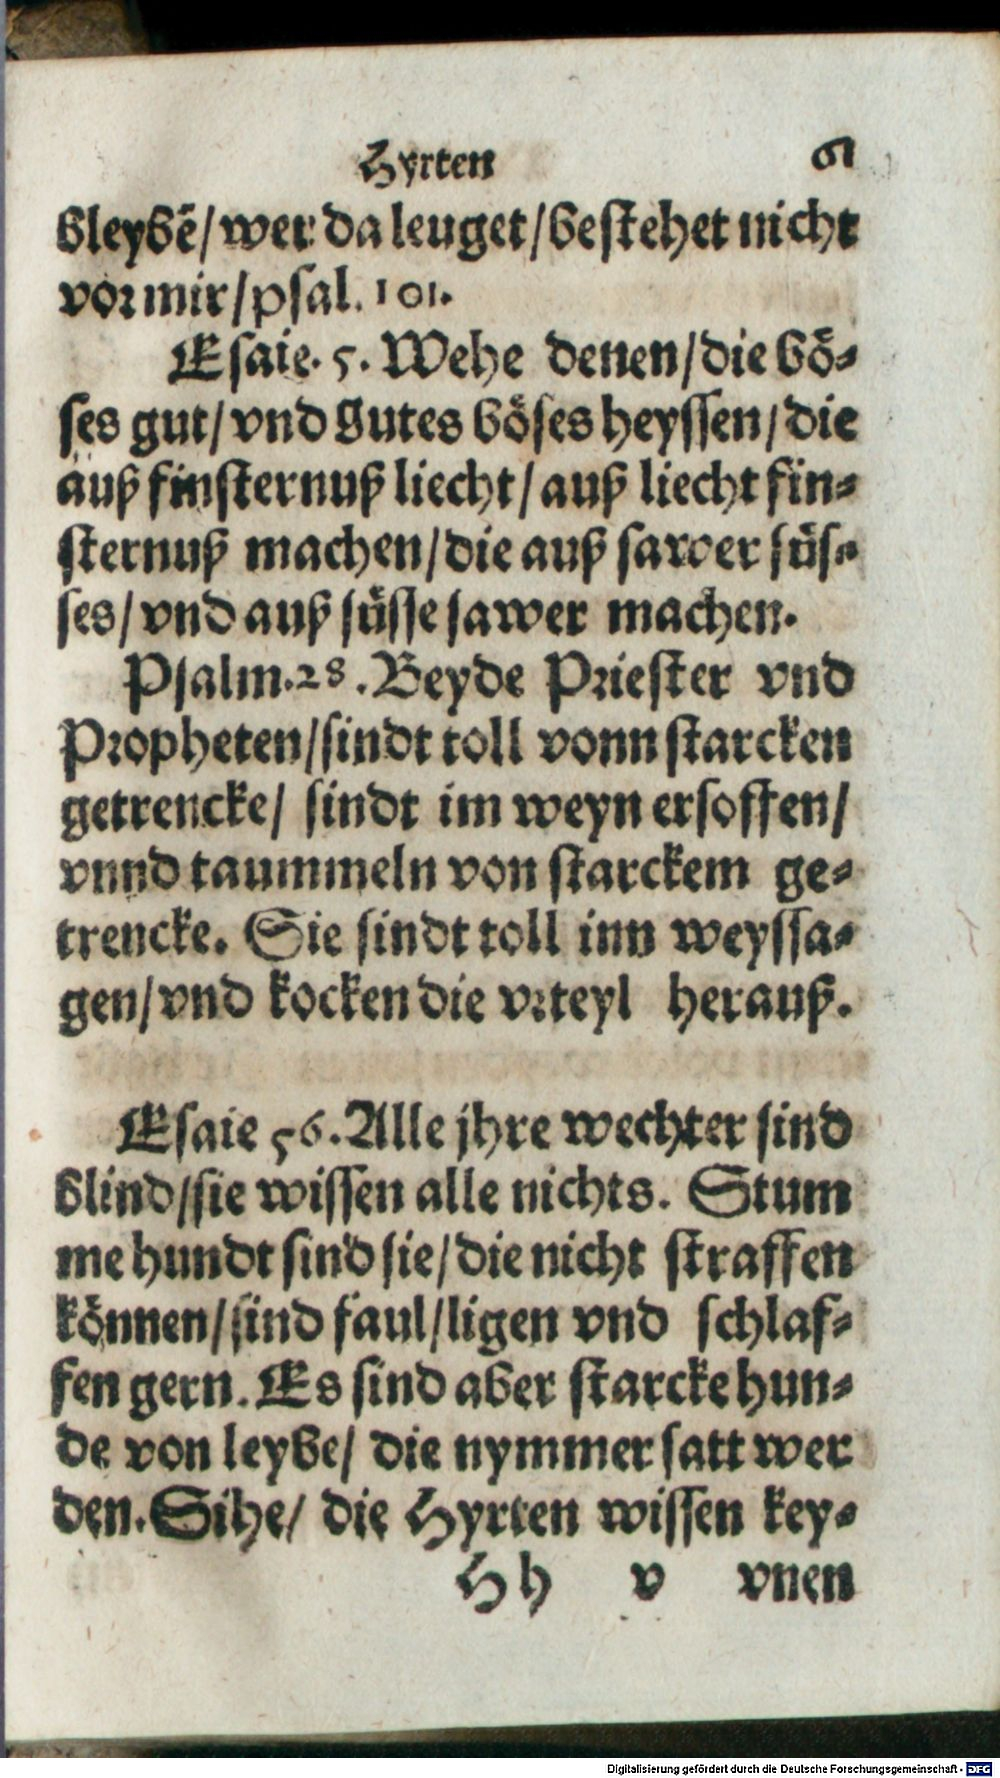 Hyrten 61
bleybē/ wer da leuget/ bestehet nicht
vor mir/ psal. 101.
Esaie. 5. Wehe denen/ die bö-
ses gut/ vnd Gutes böses heyssen/ die
auß finsternuß liecht/ auß liecht fin-
sternuß machen/ die auß sawer süs-
ses/ vnd auß süsse sawer machen.
Psalm. 28. Beyde Priester vnd
Propheten/ sindt toll vonn starcken
getrencke/ sindt im weyn ersoffen/
vnnd taummeln von starckem ge-
trencke. Sie sindt toll inn weyssa-
gen/ vnd kocken die vrteyl herauß.
Esaie 56. Alle jhre wechter sind
blind/ sie wissen alle nichts. Stum
me hundt sind sie/ die nicht straffen
können/ sind faul/ ligen vnd schlaf-
fen gern. Es sind aber starcke hun-
de von leybe/ die nymmer satt wer
den. Sihe/ die Hyrten wissen key-
Hh v vnen
Digitalisierung gefördert durch die Deutsche Forschungsgemeinschaft - DFG